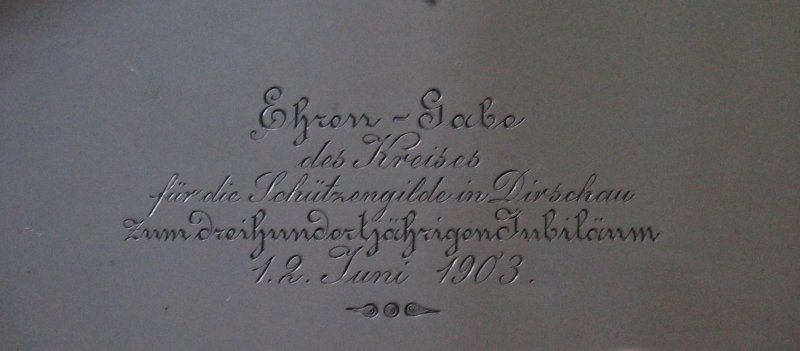 Ehren-Gabe
des Kreises
für die Schützengilde in Dirschau
zum dreihundertjährigen Jubiläum
1.2. Juni 1903.